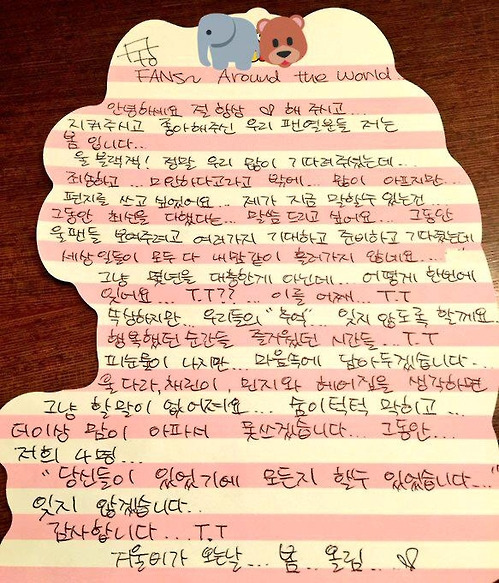 FANS~ Around the world.
안녕하세요 절 항상 ♡ 해 주시고...
지켜주시고 좋아해주신 우리 팬 여러분들 저는
봄 입니다...
울 블랙잭! 정말 우리 많이 기다려주었는데...
죄송하고... 미안하다고라고 밖에... 많이 아프지만...
편지를 쓰고 싶었어요... 제가 지금 말할수 있는건...
그동안 최선을 다했다는... 말씀 드리고 싶어요... 그동안
울팬들 보여주려고 여러가지 기대하고 준비하고 기다렸는데
세상일들이 모두 다 내맘같이 흘러가지 않네요...
그냥 몇년을 대충한게 아닌데... 어떻게 한번에
잊어요... T.T?? ... 이를 어째... T.T
속상하지만... 우리들의 "추억"... 잊지 않도록 할께요..
행복했던 순간들 즐거웠던 시간들... T.T
피눈물이 나지만... 마음속에 담아두겠습니다..
울 다라, 채린이, 민지와 헤어짐을 생각하면
그냥 할말이 없어져요... 숨이턱턱 막히고...
더이상 맘이 아파서 못쓰겠습니다... 그동안...
저희 4명...
"당신들이 있었기에 모든지 할수 있었습니다..."
잊지 않겠습니다..
감사합니다... T.T
겨울비가 오는날... 봄. 올림... ♡